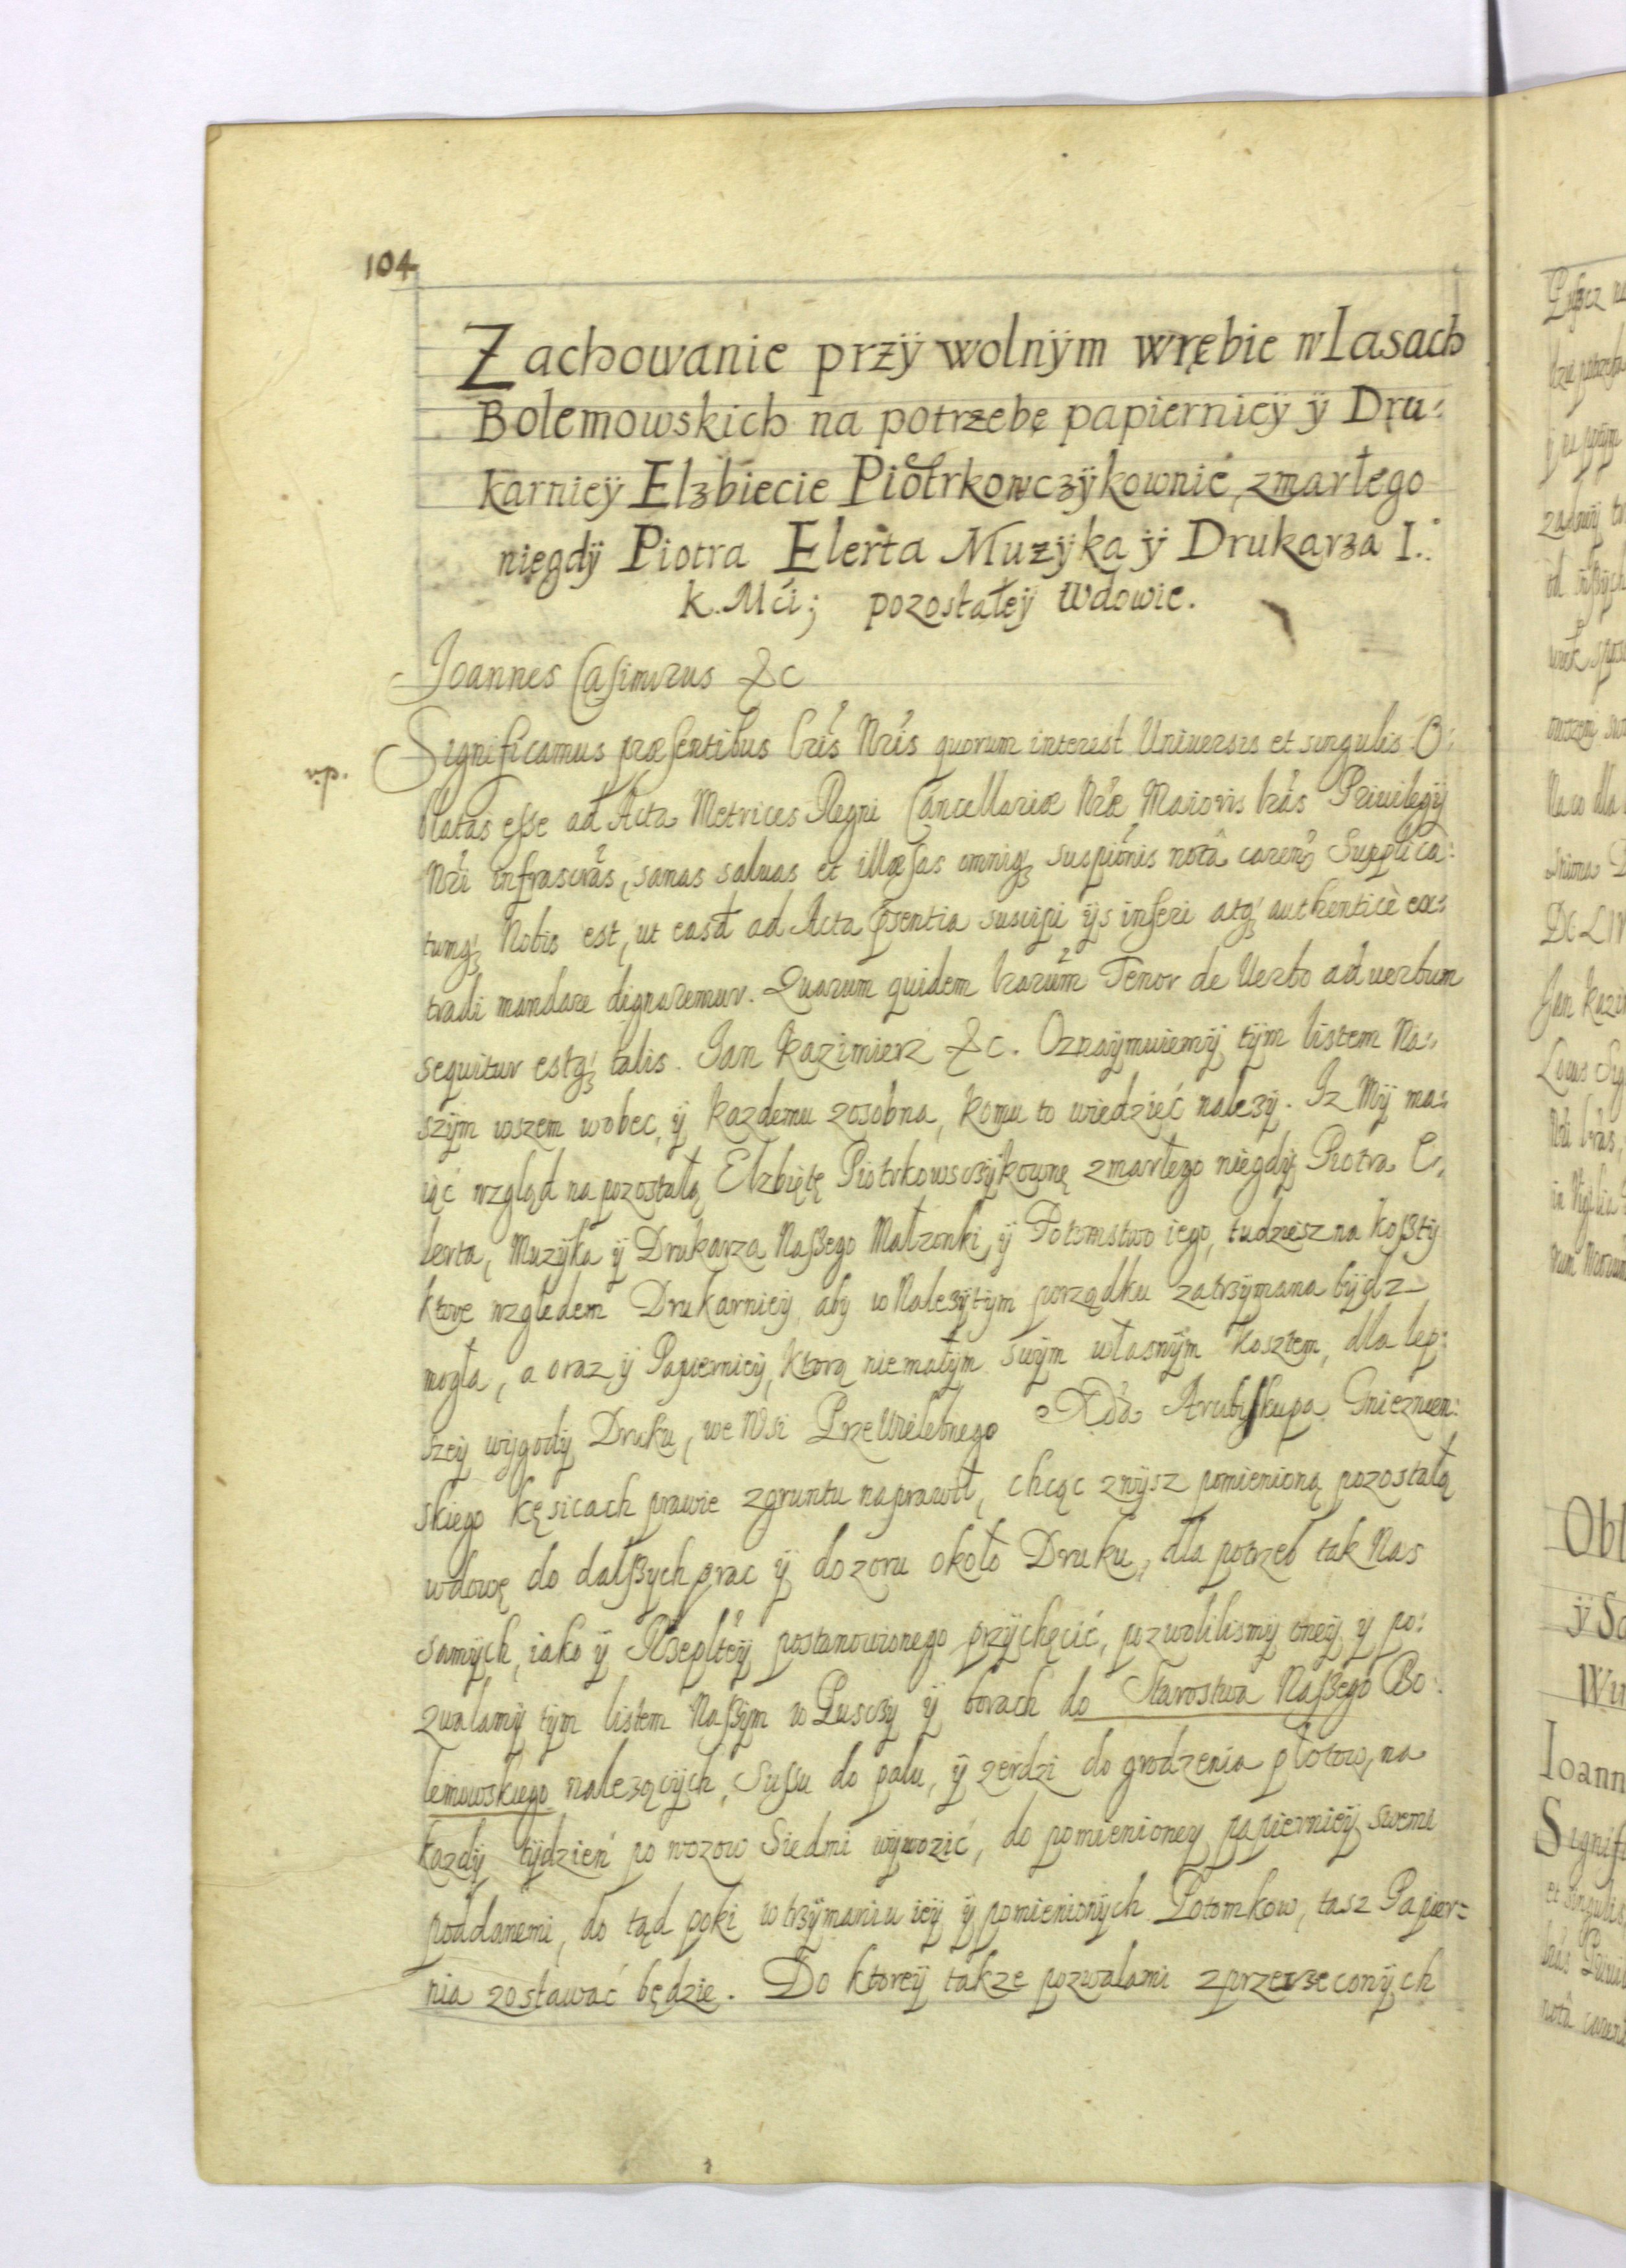 104
Zachowanie przÿ wolnÿm wrębie w Lasach
Bolemowskich na potrzebę papiernieÿ ÿ Dru:
karnieÿ Elzbiecie Piotrkowczÿkownie, zmarłego
niegdÿ Piotra Elerta Muzÿka ÿ Drukarza I.:
K. Mći; pozostałeÿ Wdowie.
Joannes Casimirus &c
Significamus præsentibus lris Nris quorum interest Universis et singulis. O:
blatas esse ad Acta Metrices Regni Cancellariæ Nræ Maioris lras Privilegÿ
Nri infrascras, sanas saluas et illæsas omniqʒ suspionis notâ caren. Supplica:
tumqʒ Nobis est, ut easd ad Acta psentia suscipi ÿs inseri atqʒ authenticè ex:
tradi mandare dignaremur. Quarum quidem lrarum Tenor de Verbo ad uerbum
sequitur estqʒ talis. Jan Kazimierz &c. Oznaÿmuiemÿ tÿm listem Na:
szÿm wszem wobec, ÿ kazdemu zosobna, komu to wiedzieć nalezÿ. Iz Mÿ ma:
iąć wzgląd na pozostałą Elzbiętę Piotrkowsczÿkownę zmarłego niegdÿ Piotra E:
lerta, Muzÿka ÿ Drukarza Naszego Małzonki, ÿ Potomstwo iego, tudziesz na kosztÿ
ktore względem Drukarnieÿ, abÿ w Nalezÿtÿm porządku zatrzÿmana bÿdz
mogła, a oraz ÿ Papiernieÿ, ktorą niemałÿm swÿm własnÿm Kosztem, dla lep:
szeÿ wÿgodÿ Druku, we Wsi PrzeWielebnego Xdza Arcubiskupa Gnieznien:
skiego Kęsicach prawie zgruntu naprawił, chcąc zwÿsz pomienioną pozostałą
wdowę do dalszÿch prac ÿ dozoru około Druku, dla potrzeb tak Nas
samÿch, iako ÿ Rzeplteÿ postanowionego przÿchęcić, pozwolilismÿ oneÿ ÿ po:
zwalamÿ tÿm listem Naszÿm w Pusczÿ ÿ borach do Starostwa Naszego Bo:
lemowskiego nalezącÿch, Suszu do palu, ÿ zerdzi do grodzenia płotow, na
kazdÿ tÿdzień po wozow Siedmi wÿwozić, do pomienioneÿ papiernieÿ swemi
poddanemi, do tąd poki w trzÿmaniu ieÿ ÿ pomienionÿch Potomkow, tasz Papier=
nia zostawać będzie. Do ktoreÿ takze pozwalami zprzerzeconÿch